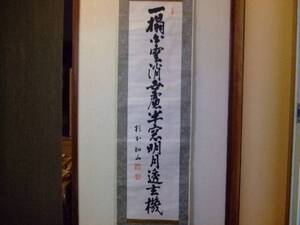 一榻白雲消世慮半窓明月透玄機